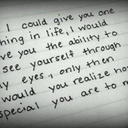 I could give you one
thing in life, I would
give you the ability to
see yourself through
my eyes, only then
would you realize how
special you are to me